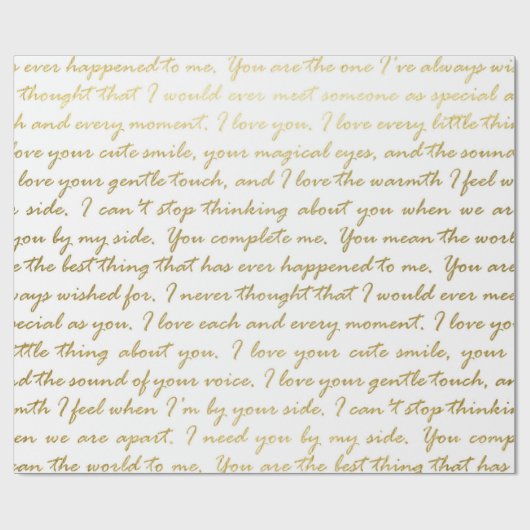 s ever happened to me. You are the one I've always wi
thought that I would ever meet someone as special a
h and every moment. I love you. I love every little thin
love your cute smile, your magical eyes, and the sound
love your gentle touch, and I love the warmth I feel w
r side. I can't stop thinking about you when we ar
you by my side. You complete me. You mean the worl
e the best thing that has ever happened to me. You are
ways wished for. I never thought that I would ever mee
pecial as you. I love each and every moment. I love yo
ttle thing about you. I love your cute smile, your
nd the sound of your voice. I love your gentle touch, an
mth I feel when I'm by your side. I can't stop thinkin
en we are apart. I need you by my side. You comp
ean the world to me. You are the best thing that has